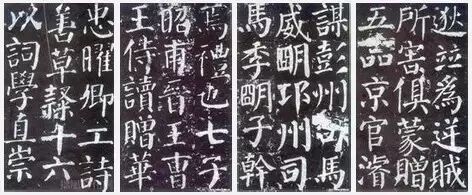 逖並為逆賊
所害俱蒙贈
五品京官濬
謀彭州司馬
威明邛州司
馬季明子幹
焉禮也七子
昭甫晉王曹
王侍讀贈華
忠曜卿工詩
善草隸十六
以詞學直崇